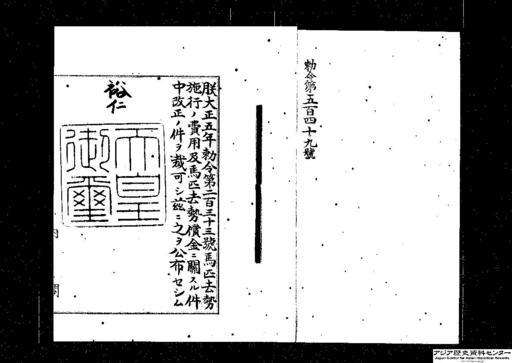 勅令第五百四十九號
朕大正五年勅令第二百三十三號馬匹去勢
施行ノ費用及馬匹去勢償金ニ關スル件
中改正ノ件ヲ裁可シ茲ニ之ヲ公布セシム
裕仁
天皇
御璽
内閣
アジア歴史資料センター
Japan Center for Asian Historical Records